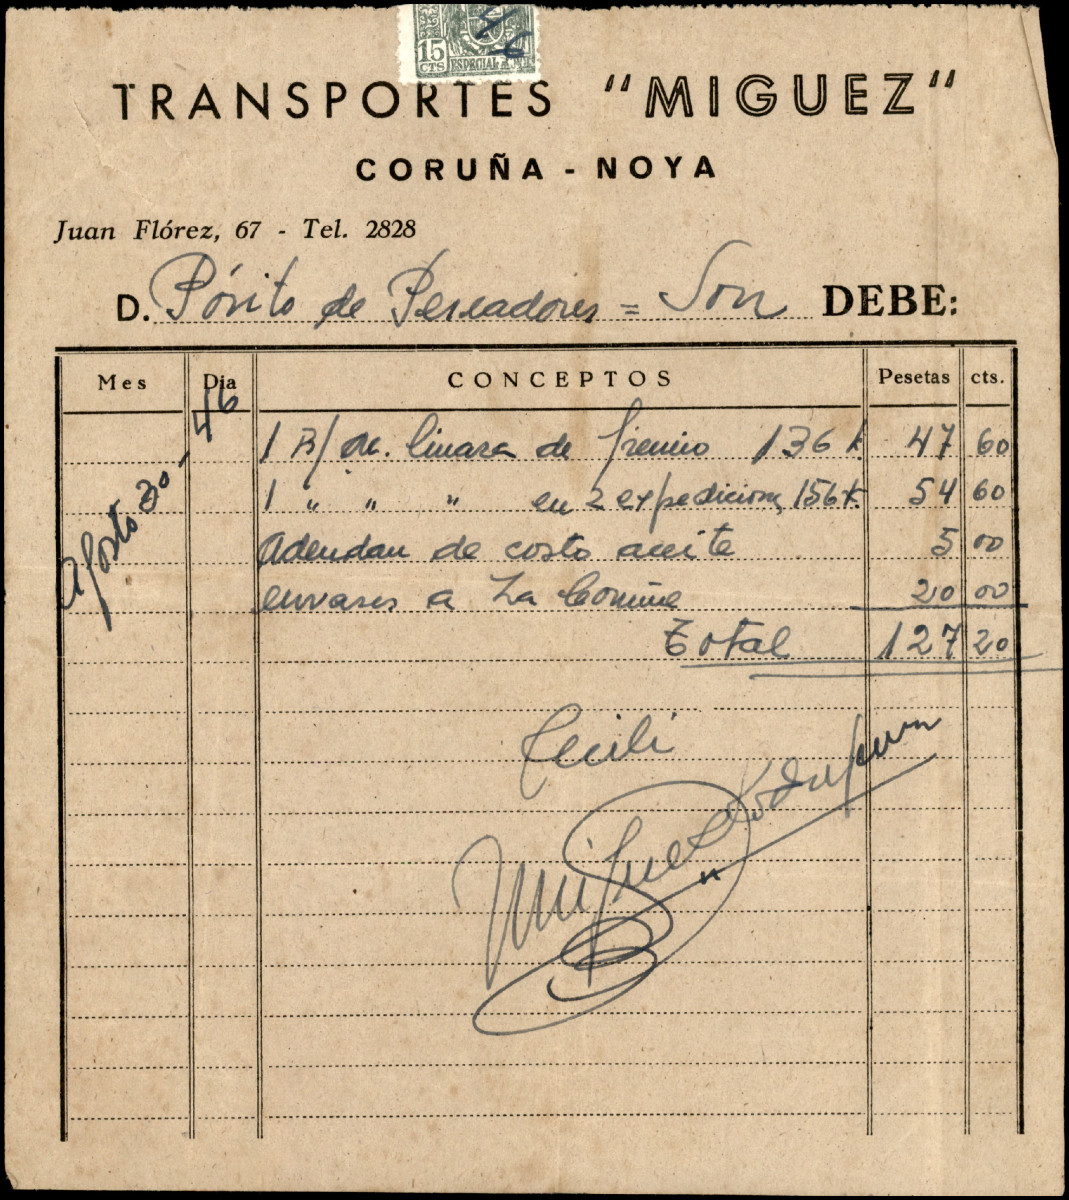 46
15
CTS
ESPECIAL
TRANSPORTES "MIGUEZ"
CORUÑA - NOYA
Juan Flórez, 67 - Tel. 2828
D. Pósito de Pescadores = Son DEBE:
Mes Dia CONCEPTOS Pesetas cts.
Agosto 30-46
1 B/ de. linaza de 136 k 47 60
1 " " " en 2 expedicions, 156 k. 54 60
Adeudan de costo aceite 5 00
envases a La Coruña 20 00
Total 127 20
Recibi
Miguel Rodriguez